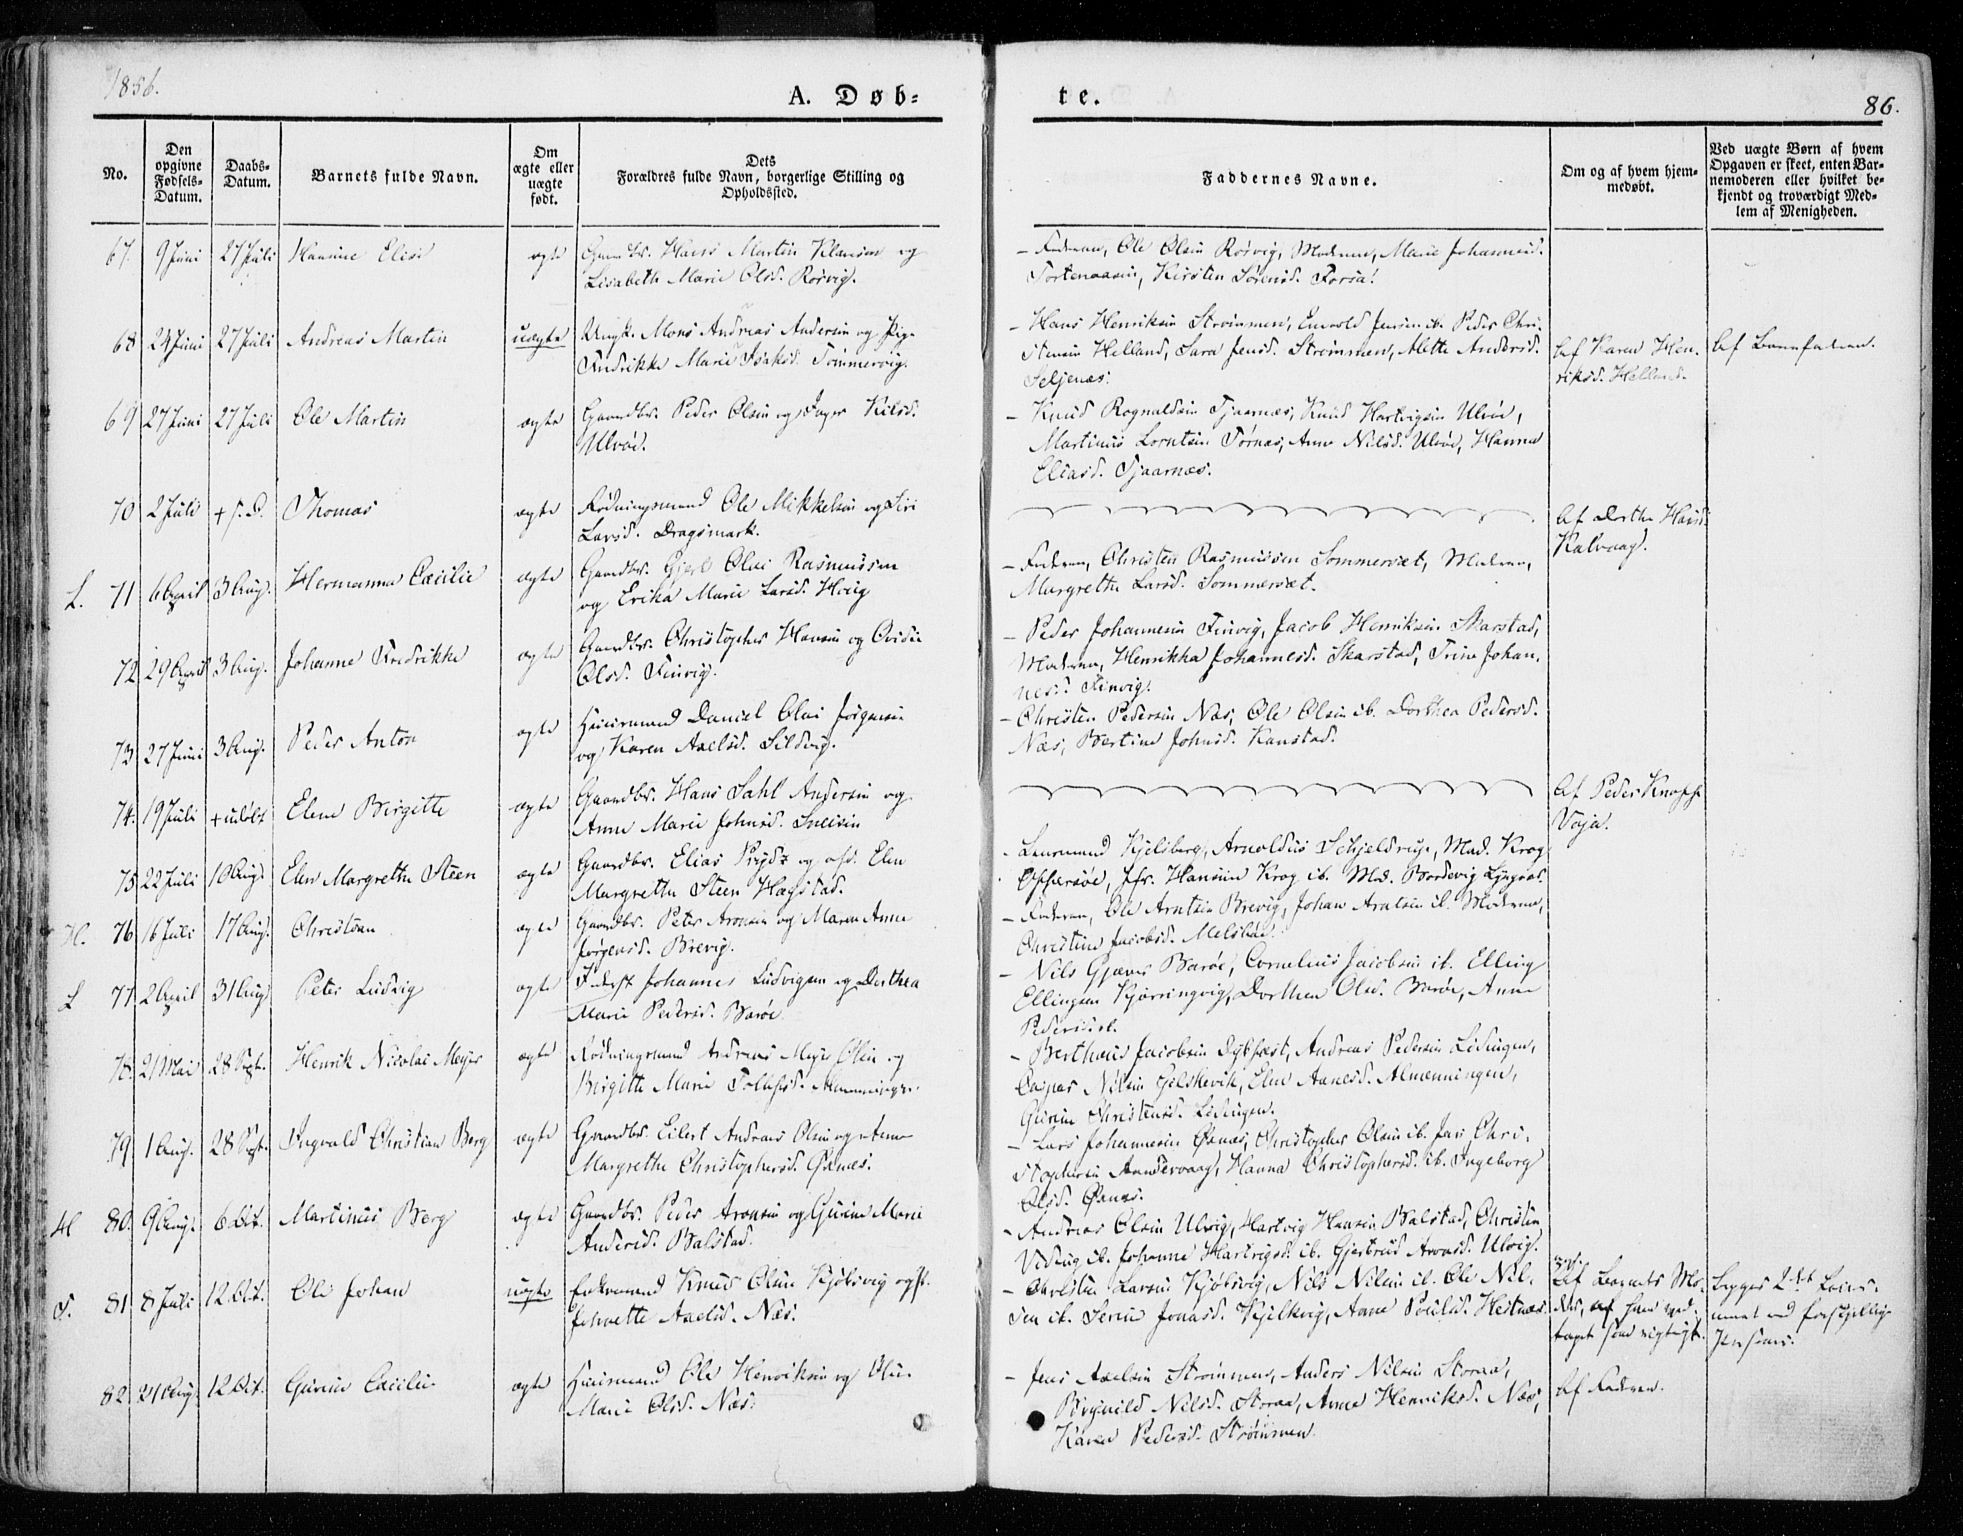 1856.
A. Døb=
te.
86.
No.
Den
opgivne
Fødsels-
Datum.
Daabs-
Datum.
Barnets fulde Navn.
Om
ægte eller
uægte
født.
Dets
Forældres fulde Navn, borgerlige Stilling og
Opholdssted.
Faddernes Navne.
Om og af hvem hjem-
medøbt.
Ved uægte Børn af hvem
Opgaven er skeet, enten Bar-
nemoderen eller hvilket be-
kjendt og troværdigt Med-
lem af Menigheden.
67. 9 Juni 27 Juli Hansine Elise ægte Gaardbr. Hans Martin Klausen og
Lisabeth Marie Olsd. Rørvig.
- Faderen, Ole Olsen Rørvig, Moderen, Marie Johannesd.
Kirsten Sørensd. Forsaa.
68 24 Juni 27 Juli Andreas Martin uægte Ungk. Mons Andreas Andersen og Pige
Fredrikke Marie Isaksd. Tømmervig.
- Hans Henriksen Strømmen, Enevold Jensen ib. Peder Chri-
stensen Helland, Sara Jensd. Strømmen, Alette Andersd.
Seljenæs.
Af Karen Hen-
riksd. Helland.
Af Barnefaderen.
69 27 Juni 27 Juli Ole Martin ægte Gaardbr. Peder Olsen og Inger Nilsd.
Ulvøe.
- Knud Rognaldsen Tjaarnæs, Knud Hartvigsen Ulvøe,
Martinus Lorntsen Tørnæs, Anne Nilsd. Ulvøe, Hanna
Eliasd. Tjaarnæs.
70 2 Juli + s. D. Thomas ægte Rødningsmand Ole Mikkelsen og Siri
Larsd. Dragsmark.
Af Dorthe Hansd.
Kalvaag.
L. 71 6 April 3 Aug. Hermanna Cæcilie ægte Gaardbr. Gjert Olai Rasmussen
og Erika Marie Larsd. Hvig
- Faderen, Christen Rasmussen Sommersæt, Moderen,
Margrethe Larsd. Sommersæt.
72 29 April 3 Aug. Johanne Fredrikke ægte Gaardbr. Christopher Hansen og Ovidie
Olsd. Finvig.
- Peder Johannesen Finvig, Jacob Henriksen Skarstad,
Moderen, Henrikka Johannesd. Skarstad, Trine Johan-
nesd. Finvig.
73. 27 Juni 3 Aug. Peder Anton ægte Huusmand Daniel Olai Jørgensen
og Karen Axelsd. Sildvig.
- Christen Pedersen Næs, Ole Olsen ib. Dorthea Pedersd.
Næs, Bertine Johnsd. Kanstad.
74. 19 Juli + udøbt Elene Birgitte ægte Gaardbr. Hans Dahl Andersen og
Anne Marie Johnsd. Sneisen
Af Peder Knopph
Voja.
75 22 Juli 10 Aug. Elen Margrethe Steen ægte Gaardbr. Elias Prydz og Elen
Margrethe Steen Hagstad.
- Lensmand Kjelsberg, Arnoldus Schjeldrup, Mad. Krog
Offersøe, Jfr. Hansine Krog ib. Mad. Bordevig
H. 76 16 Juli 17 Aug. Christian ægte Gaardbr. Peter Aronsen og Maren Anne
Jørgensd. Brevig.
- Faderen, Ole Arntsen Brevig, Johan Arntsen ib. Moderen,
Christine Jacobsd.
L 77 2 April 31 Aug. Peter Ludvig ægte Inderst Johannes Ludvigsen og Dorthea
Marie Pedersd. Barøe
- Nils Gjæver Barøe, Cornelius Jacobsen ib. Elling
Ellingsen Kjørringvig, Dorthea Olsd. Barøe, Anne
Pedersd. ib.
78. 21 Mai 28 Sept. Henrik Nicolai Meyer ægte Rødningsmand Andreas Meyer Olsen og
Birgitte Marie Tollefsd. Almenningen.
- Berthæus Jacobsen Dybfest, Andreas Pedersen Lødingen,
Caspar Nilsen Fjelskevik, Elen Aanesd. Almenningen,
Gurine Christensd. Lødingen.
79. 1 Aug. 28 Sept. Ingvald Christian Berg ægte Gaardbr. Eilert Andreas Olsen og Anne
Margrethe Christophersd. Øxnæs.
- Lars Johannesen Øxnæs, Christopher Olsen ib. Jens Chri-
stophersen Sandervaag, Hanna Christophersd. ib. Ingeborg
Olsd. Øxnæs.
H 80. 9 Aug. 6 Oct. Martinus Berg ægte Gaardbr. Peder Aronsen og Gurine Marie
Andersd. Balstad.
- Andreas Olsen Ulvig, Hartvig Hansen Balstad, Christen
ib. Johanne Hartvigsd. ib. Gjertrud Aronsd. Ulvig.
T. 81. 8 Juli 12 Oct. Ole Johan uægte Enkemand Knud Olsen Kjøbsvig og P.
Johnette Axelsd. Næs.
- Christen Larsen Kjøbsvig, Nils Nilsen ib. Ole Nil-
sen ib. Serine Jonasd. Anne Poulsd. Hestnæs.
Af Barnets Mo-
der, af ham ved-
taget som rigtigt.
Begges 2det Leier-
maal med forskjellige
Personer.
82. 21 Aug. 12 Oct. Gurine Cæcilie ægte Huusmand Ole Henriksen og Oline
Marie Olsd. Næs.
- Jens Axelsen Strømmen, Anders Nilsen Storaa,
Nilsd. Storaa, Anna Henriksd. Næs,
Karen Pedersd. Strømmen.
Af Faderen.